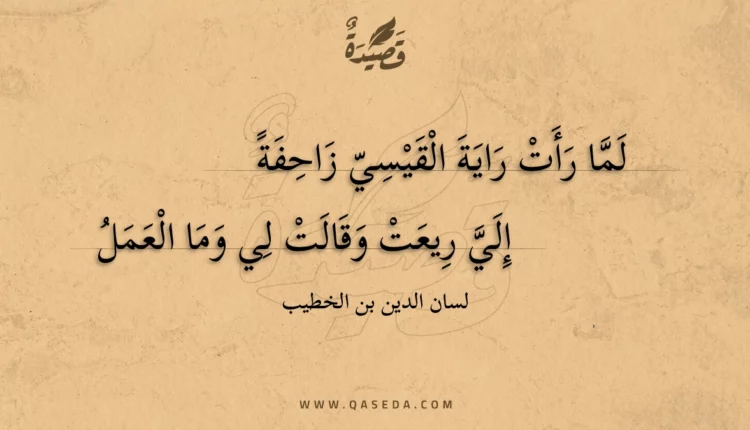 قَصِيْدَةٌ
لَمَّا رَأَتْ رَايَةَ الْقَيْسِيّ زَاحِفَةً
إِلَيَّ رِيعَتْ وَقَالَتْ لِي وَمَا الْعَمَلُ
لسان الدين بن الخطيب
WWW.QASEDA.COM